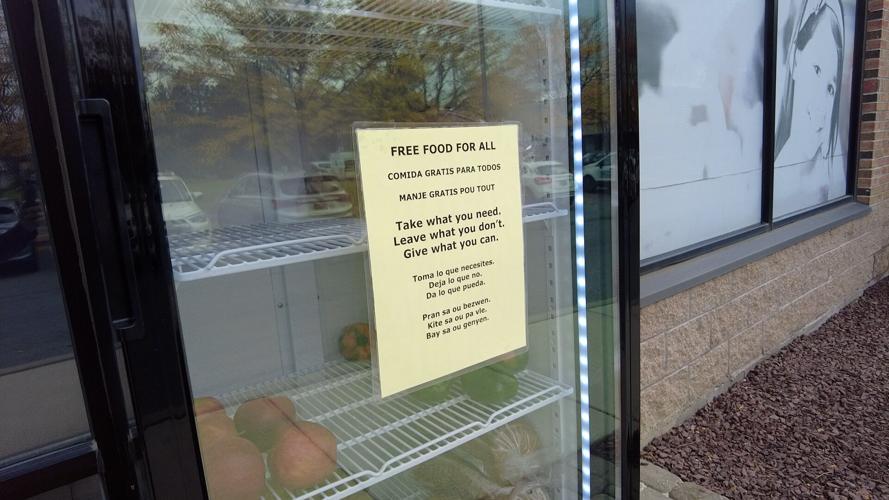 FREE FOOD FOR ALL
COMIDA GRATIS PARA TODOS
MANJE GRATIS POU TOUT
Take what you need.
Leave what you don't.
Give what you can.
Toma lo que necesites.
Deja lo que no.
Da lo que pueda.
Pran sa ou bezwen.
Kite sa ou pa vle.
Bay sa ou genyen.